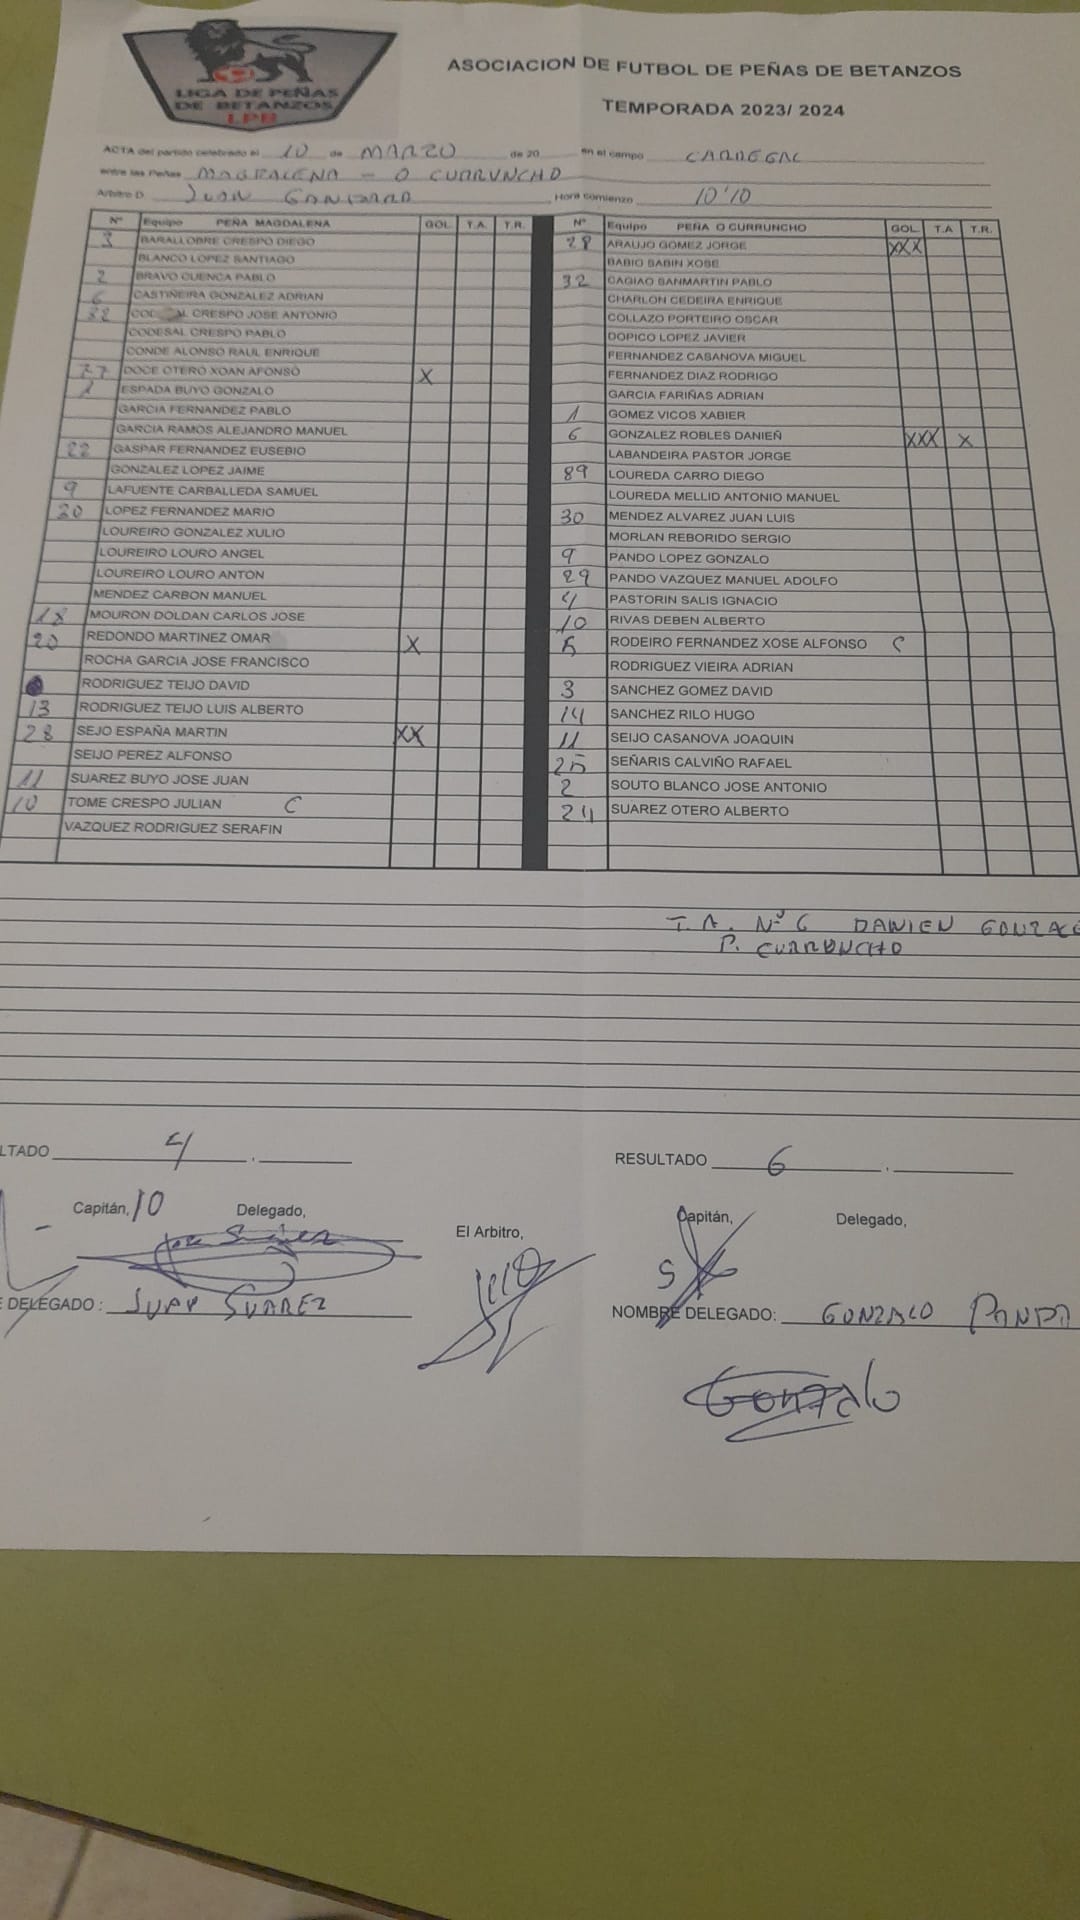 LIGA DE PEÑAS
DE BETANZOS
LPB
ASOCIACION DE FUTBOL DE PEÑAS DE BETANZOS
TEMPORADA 2023/ 2024
ACTA del partido celebrado el 10 de MARZO de 20 en el campo CARREGAL
entre las Peñas MAGDALENA - O CURRUNCHO
Arbitro D. JUAN Hora comienzo 10'10
Nº Equipo PEÑA MAGDALENA GOL T.A. T.R.
3 BARALLOBRE CRESPO DIEGO
BLANCO LOPEZ SANTIAGO
2 BRAVO CUENCA PABLO
6 CASTIÑEIRA GONZALEZ ADRIAN
CRESPO JOSE ANTONIO
CODESAL CRESPO PABLO
CONDE ALONSO RAUL ENRIQUE
77 DOCE OTERO XOAN AFONSO X
1 ESPADA BUYO GONZALO
GARCIA FERNANDEZ PABLO
GARCIA RAMOS ALEJANDRO MANUEL
22 GASPAR FERNANDEZ EUSEBIO
GONZALEZ LOPEZ JAIME
9 LAFUENTE CARBALLEDA SAMUEL
20 LOPEZ FERNANDEZ MARIO
LOUREIRO GONZALEZ XULIO
LOUREIRO LOURO ANGEL
LOUREIRO LOURO ANTON
MENDEZ CARBON MANUEL
18 MOURON DOLDAN CARLOS JOSE
20 REDONDO MARTINEZ OMAR X
ROCHA GARCIA JOSE FRANCISCO
RODRIGUEZ TEIJO DAVID
13 RODRIGUEZ TEIJO LUIS ALBERTO
28 SEJO ESPAÑA MARTIN XX
SEIJO PEREZ ALFONSO
11 SUAREZ BUYO JOSE JUAN
10 TOME CRESPO JULIAN C
VAZQUEZ RODRIGUEZ SERAFIN
Nº Equipo PEÑA O CURRUNCHO GOL T.A T.R.
28 ARAUJO GOMEZ JORGE XXX
BABIO SABIN XOSE
32 CAGIAO SANMARTIN PABLO
CHARLON CEDEIRA ENRIQUE
COLLAZO PORTEIRO OSCAR
DOPICO LOPEZ JAVIER
FERNANDEZ CASANOVA MIGUEL
FERNANDEZ DIAZ RODRIGO
GARCIA FARIÑAS ADRIAN
1 GOMEZ VICOS XABIER
6 GONZALEZ ROBLES DANIEÑ XXX X
LABANDEIRA PASTOR JORGE
89 LOUREDA CARRO DIEGO
LOUREDA MELLID ANTONIO MANUEL
30 MENDEZ ALVAREZ JUAN LUIS
MORLAN REBORIDO SERGIO
9 PANDO LOPEZ GONZALO
29 PANDO VAZQUEZ MANUEL ADOLFO
4 PASTORIN SALIS IGNACIO
10 RIVAS DEBEN ALBERTO
5 RODEIRO FERNANDEZ XOSE ALFONSO C
RODRIGUEZ VIEIRA ADRIAN
3 SANCHEZ GOMEZ DAVID
14 SANCHEZ RILO HUGO
11 SEIJO CASANOVA JOAQUIN
25 SEÑARIS CALVIÑO RAFAEL
2 SOUTO BLANCO JOSE ANTONIO
24 SUAREZ OTERO ALBERTO
T.A. Nº 6 DANIEN GONZALE
P. CURRUNCHO
LTADO 4 .
RESULTADO 6 .
Capitán, 10 Delegado,
El Arbitro,
Capitán, Delegado,
5
E DELEGADO: JUAN SUAREZ
NOMBRE DELEGADO: GONZALO PANDO
Gonzalo